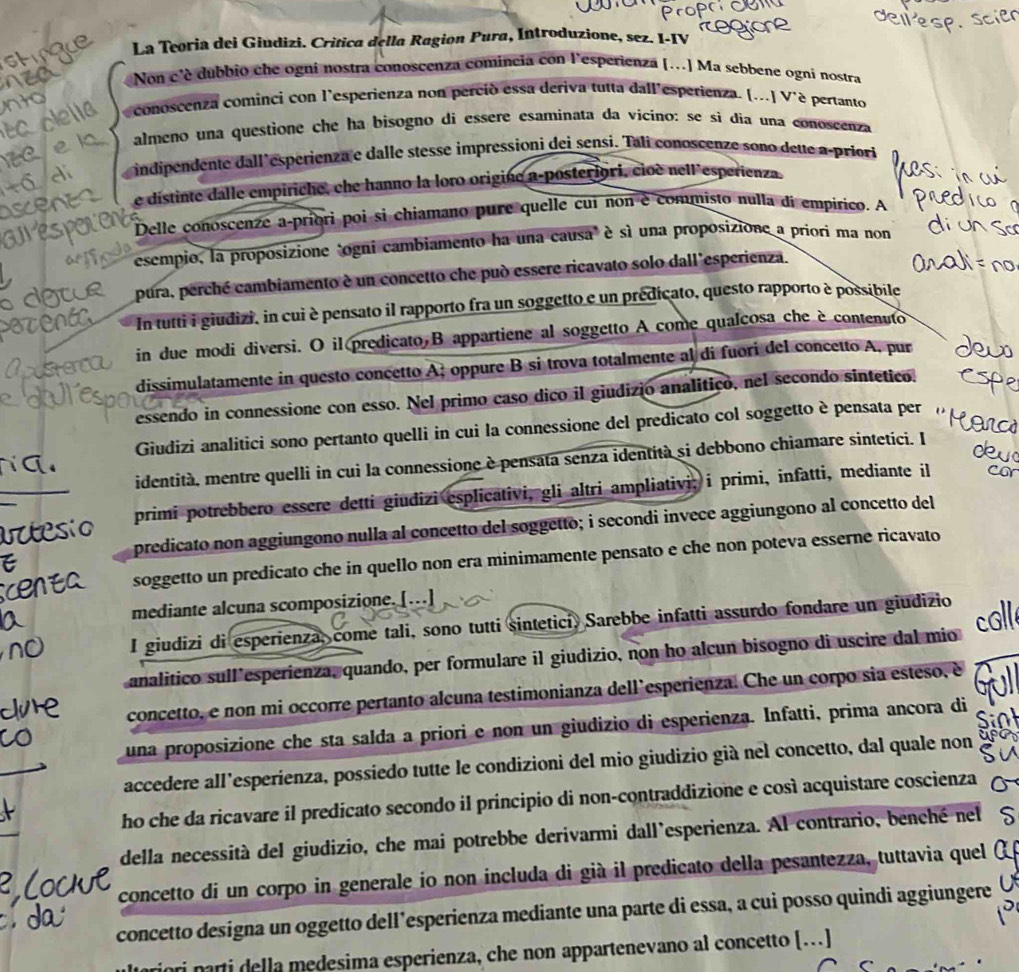 propri
regione
dell'esp. scien
La Teoria dei Giudizi. Critica della Ragion Pura, Introduzione, sez. I-IV
Non c'è dubbio che ogni nostra conoscenza comincia con l'esperienza […] Ma sebbene ogni nostra
conoscenza cominci con l'esperienza non perciò essa deriva tutta dall'esperienza. […] V'è pertanto
almeno una questione che ha bisogno di essere esaminata da vicino: se si dia una conoscenza
indipendente dall'esperienza e dalle stesse impressioni dei sensi. Tali conoscenze sono dette a-priori
e distinte dalle empiriche, che hanno la loro origine a-posteriori, cioè nell'esperienza.
Delle conoscenze a-priori poi si chiamano pure quelle cui non è commisto nulla di empirico. A
esempio, la proposizione 'ogni cambiamento ha una causa' è sì una proposizione a priori ma non
pura, perché cambiamento è un concetto che può essere ricavato solo dall'esperienza.
In tutti i giudizi, in cui è pensato il rapporto fra un soggetto e un predicato, questo rapporto è possibile
in due modi diversi. O il predicato B appartiene al soggetto A come qualcosa che è contenuto
dissimulatamente in questo concetto A; oppure B si trova totalmente al di fuori del concetto A, pur
essendo in connessione con esso. Nel primo caso dico il giudizio analitico, nel secondo sintetico.
Giudizi analitici sono pertanto quelli in cui la connessione del predicato col soggetto è pensata per
identità, mentre quelli in cui la connessione è pensata senza identità si debbono chiamare sintetici. I
primi potrebbero essere detti giudizi esplicativi, gli altri ampliativi; i primi, infatti, mediante il
predicato non aggiungono nulla al concetto del soggetto; i secondi invece aggiungono al concetto del
soggetto un predicato che in quello non era minimamente pensato e che non poteva esserne ricavato
mediante alcuna scomposizione. […]
I giudizi di esperienza, come tali, sono tutti sintetici. Sarebbe infatti assurdo fondare un giudizio
analitico sull'esperienza, quando, per formulare il giudizio, non ho alcun bisogno di uscire dal mio
concetto, e non mi occorre pertanto alcuna testimonianza dell'esperienza. Che un corpo sia esteso, è
una proposizione che sta salda a priori e non un giudizio di esperienza. Infatti, prima ancora di
accedere all'esperienza, possiedo tutte le condizioni del mio giudizio già nel concetto, dal quale non
ho che da ricavare il predicato secondo il principio di non-contraddizione e così acquistare coscienza
della necessità del giudizio, che mai potrebbe derivarmi dall'esperienza. Al contrario, benché nel
concetto di un corpo in generale io non includa di già il predicato della pesantezza, tuttavia quel
concetto designa un oggetto dell'esperienza mediante una parte di essa, a cui posso quindi aggiungere
ulteriori parti della medesima esperienza, che non appartenevano al concetto […]
in cui
predico
di un
devo